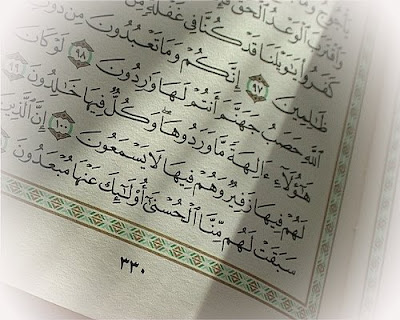 وَٱقْتَرَبَ ٱلْوَعْدُ ٱلْحَقُّ
كَفَرُوا۟ يَٰوَيْلَنَا قَدْ كُنَّا فِى غَفْلَةٍ
ظَٰلِمِينَ ٩٧ إِنَّكُمْ وَمَا تَعْبُدُونَ مِن دُونِ
ٱللَّهِ حَصَبُ جَهَنَّمَ أَنتُمْ لَهَا وَٰرِدُونَ ٩٨ لَوْ كَانَ
هَٰٓؤُلَآءِ ءَالِهَةً مَّا وَرَدُوهَا ۖ وَكُلٌّ فِيهَا خَٰلِدُونَ ٩٩
لَهُمْ فِيهَا زَفِيرٌ وَهُمْ فِيهَا لَا يَسْمَعُونَ ١٠٠ إِنَّ ٱلَّذِينَ
سَبَقَتْ لَهُم مِّنَّا ٱلْحُسْنَىٰٓ أُو۟لَٰٓئِكَ عَنْهَا مُبْعَدُونَ
٣٣٠